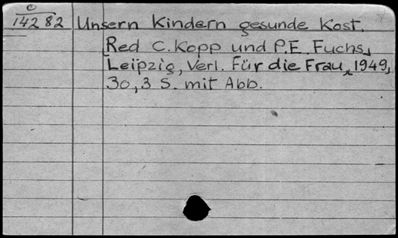 c
14282
Unsern Kindern gesunde Kost.
Red C. Kopp und P.E. Fuchs,
Leipzig, Verl. für die Frau, 1949,
30,3 S. mit Abb.